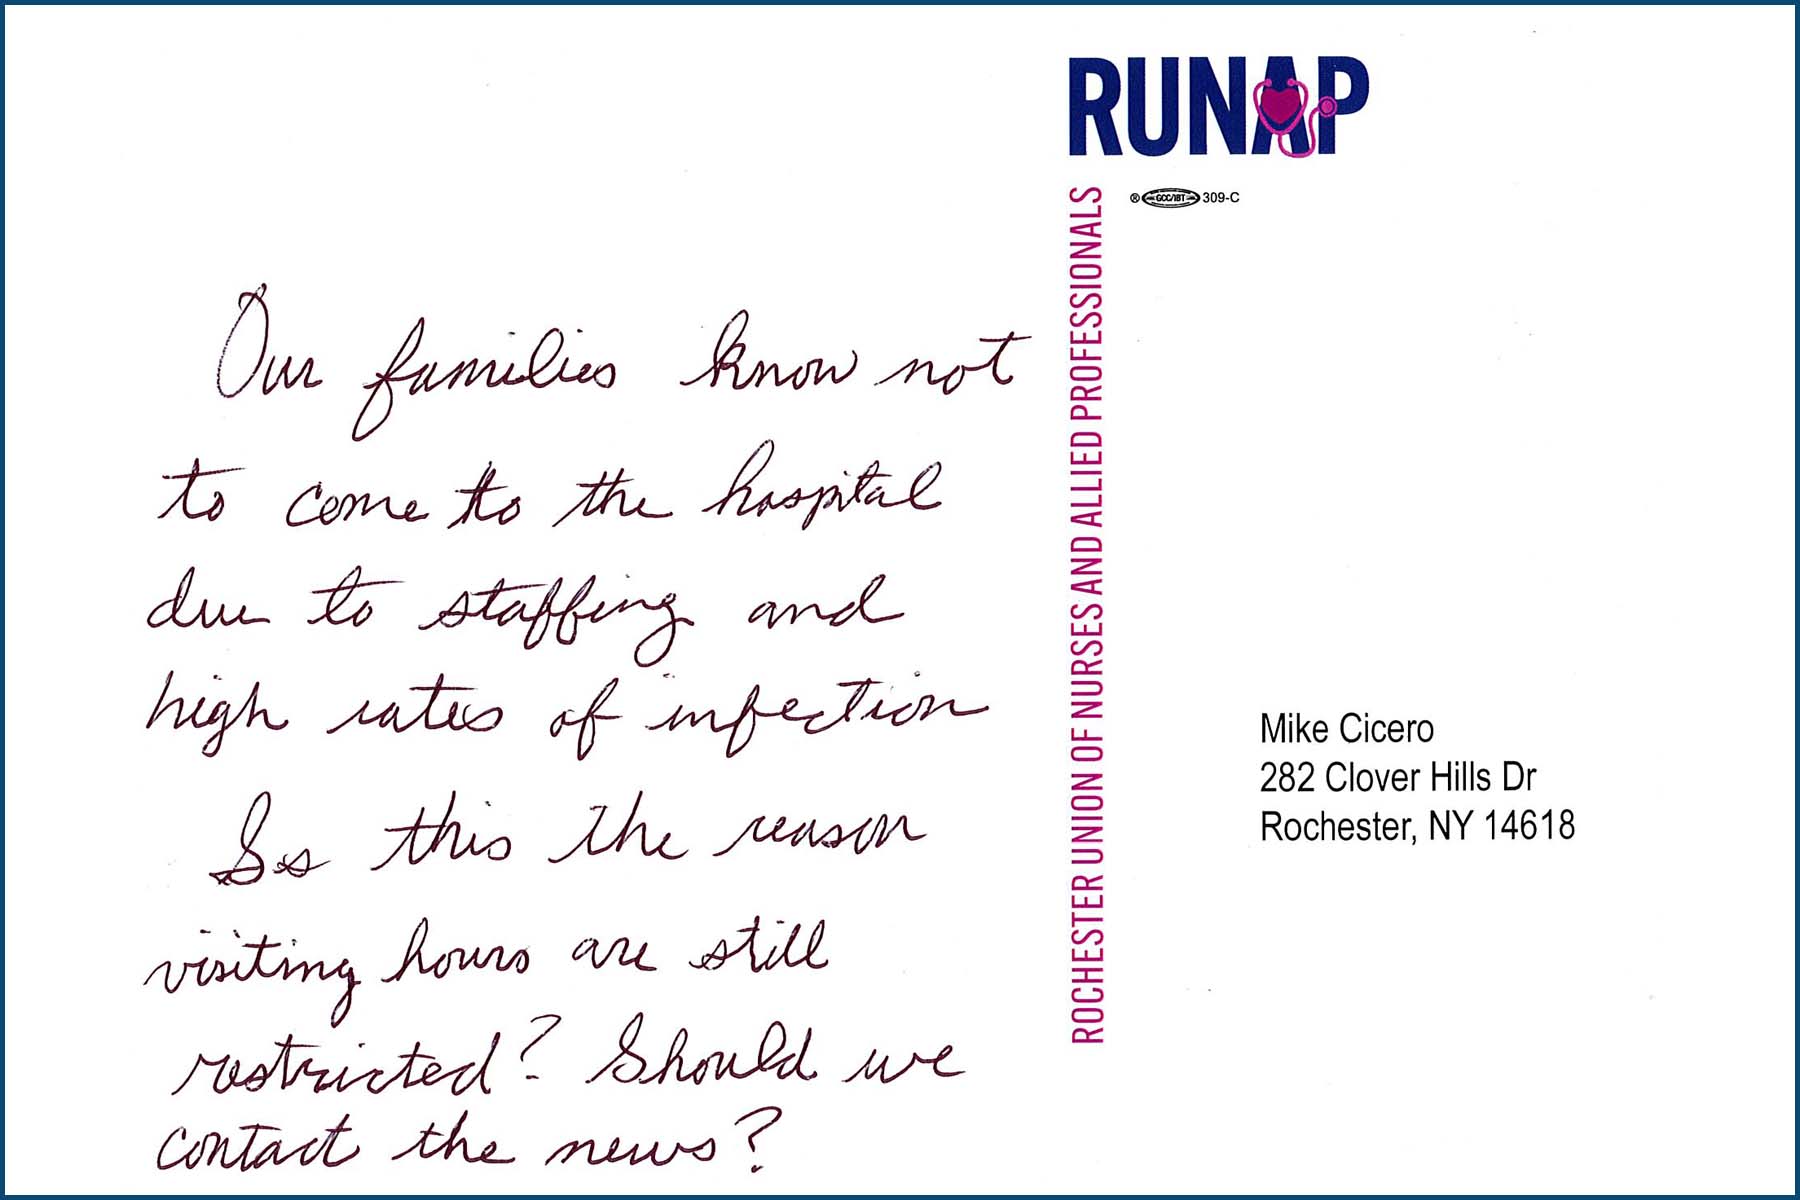 Our families know not
to come to the hospital
due to staffing and
high rates of infection
Is this the reason
visiting hours are still
restricted? Should we
contact the news?
RUNAP
® GCC/IBT 309-C
ROCHESTER UNION OF NURSES AND ALLIED PROFESSIONALS
Mike Cicero
282 Clover Hills Dr
Rochester, NY 14618